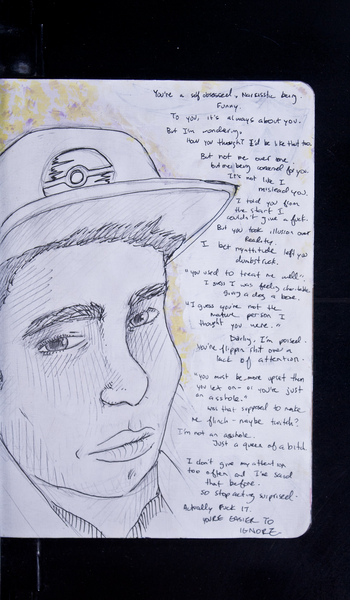 You're a self obsessed, Narssistic being.
Funny.
To you, it's always about you.
But I'm wondering,
How you thought I'd be like that too.
But not me over one,
but me being concerned for you.
It's not like I
mislead you.
I told you from
the start I
couldn't give a fuck.
But you took illusion over
Reality.
I bet my attitude left you
dumbstruck.
"You used to treat me well."
I guess I was feeling charitable
giving a dog a bone.
"I guess you're not the
mature person I
thought you were."
Darling, I'm poised.
You're flippin shit over a
lack of attention.
"You must be more upset then
you let on - or you're just
an asshole."
Was that supposed to make
me flinch - maybe twitch?
I'm not an asshole.
Just a queen of a bitch.
I don't give my attention
too often and I've said
that before.
So stop acting surprised.
Actually FUCK IT.
YOU'RE EASIER TO
IGNORE